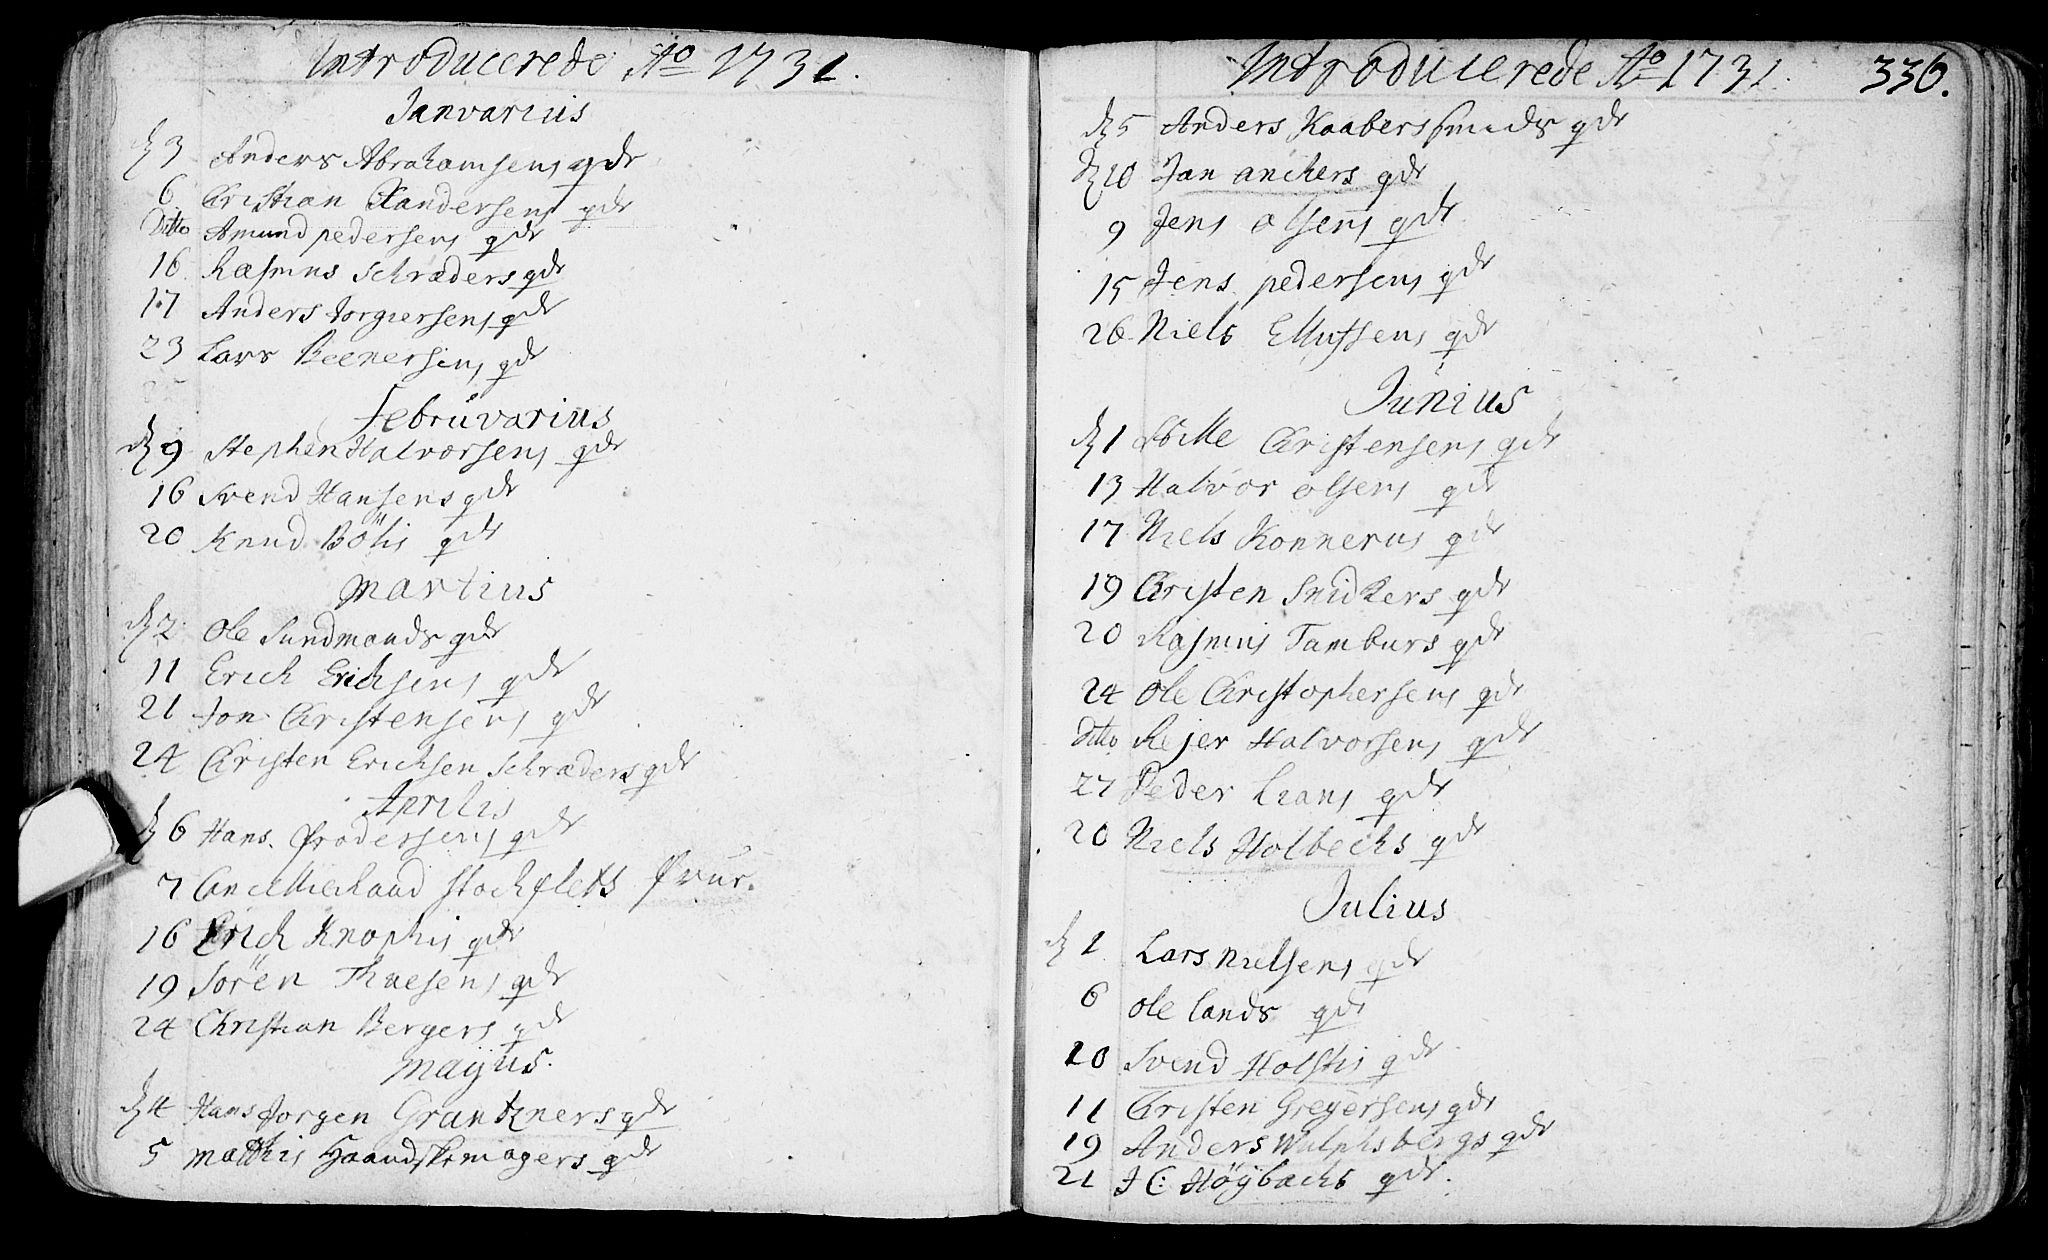 Introducerede Ao 1731.
Janvarius
d 3 Anders Abrahamsens qdr
6 Christian Xandersens qdr
Ditto Amund pedersens qdr
16 Rasmus Schræders qdr
17 Anders Jorgiersens qdr
23 Lars Reenersens qdr
Februvarius
d 9 Stephen Halvorsens qdr
16 Svend Hansens qdr
20 Knud Böhs qdr
Martius
d 2 Ole Sundmonds qdr
11 Erich Erichsens qdr
21 Jon Christensens qdr
24 Christen Erichsen Schræders qdr
Aprilis
d 6 Hans Frodersens qdr
7 Stochfleths Fruer.
16 Erich Knophs qdr
19 Sören Thuesens qdr
24 Christian Bergers qdr
Mayus.
d 4 Hans Jorgen Grantzners qdr
5 Matthis Haandskemagers qdr
Introducerede Ao 1731. 336.
d 5 Anders Kaabersmeds qdr
d 10 Jan anchers qdr
9 Jens Olsens qdr
15 Jens pedersens qdr
26 Niels Ellufsens qdr
Junius
d 1 Christensens qdr
13 Halvor Olsens qdr
17 Niels Konnerus qdr
19 Christen Snidkers qdr
20 Rasmus Tamburs qdr
24 Ole Christophersens qdr
Ditto Rejer Halvorsens qdr
27 Peder Lians qdr
20 Niels Holbechs qdr
Julius
d 1 Lars Nielsens qdr
6 Ole Lands qdr
10 Svend Holsts qdr
11 Christen Greyersens qdr
19 Anders Wulphsbergs qdr
21 J C: Höybachs qdr.